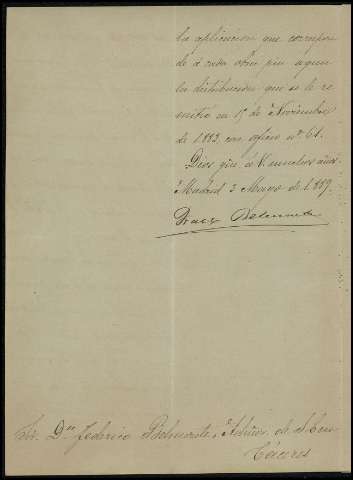 la aplicacion que correspon
de á cada obra pia segun
la distribucion que se le re
mitió en 15 de Noviembre
de 1.883, con oficio nº 61.
Dios gue á V. muchos años
Madrid 3 Mayo de 1.889.
Sr. Dn Federico Belmonte, Admor. de
Cáceres